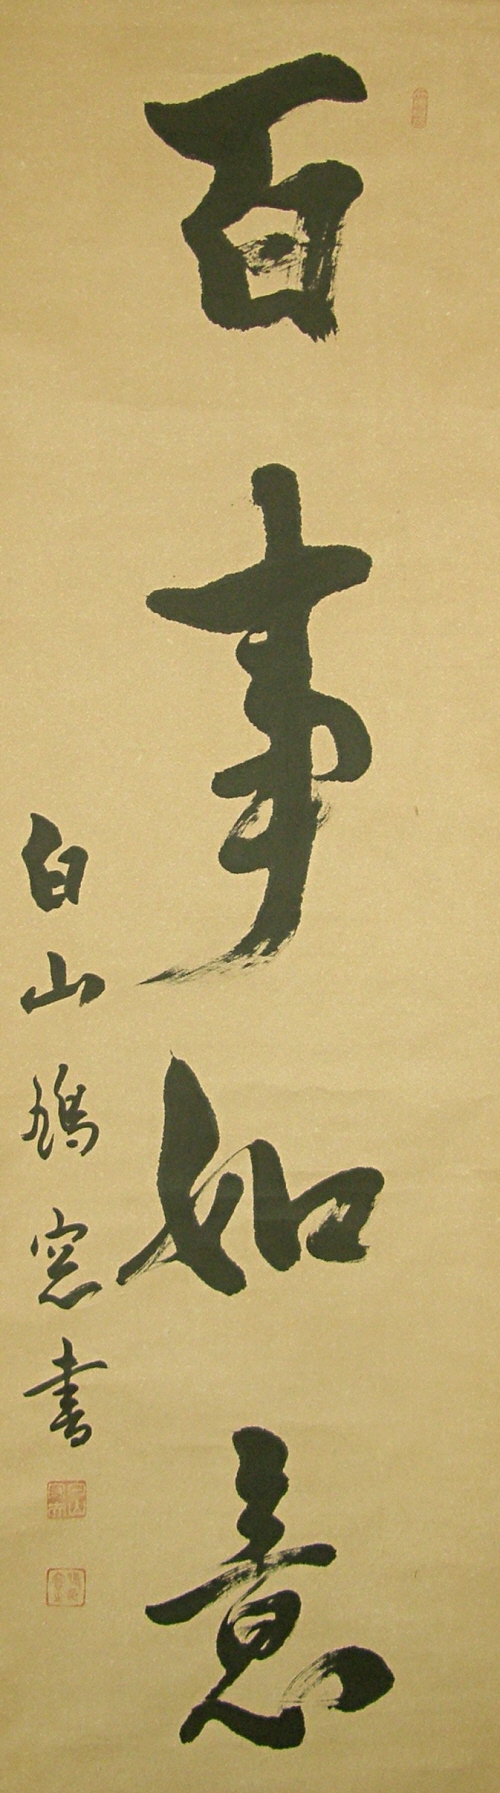 百事如意
白山鴻窓書